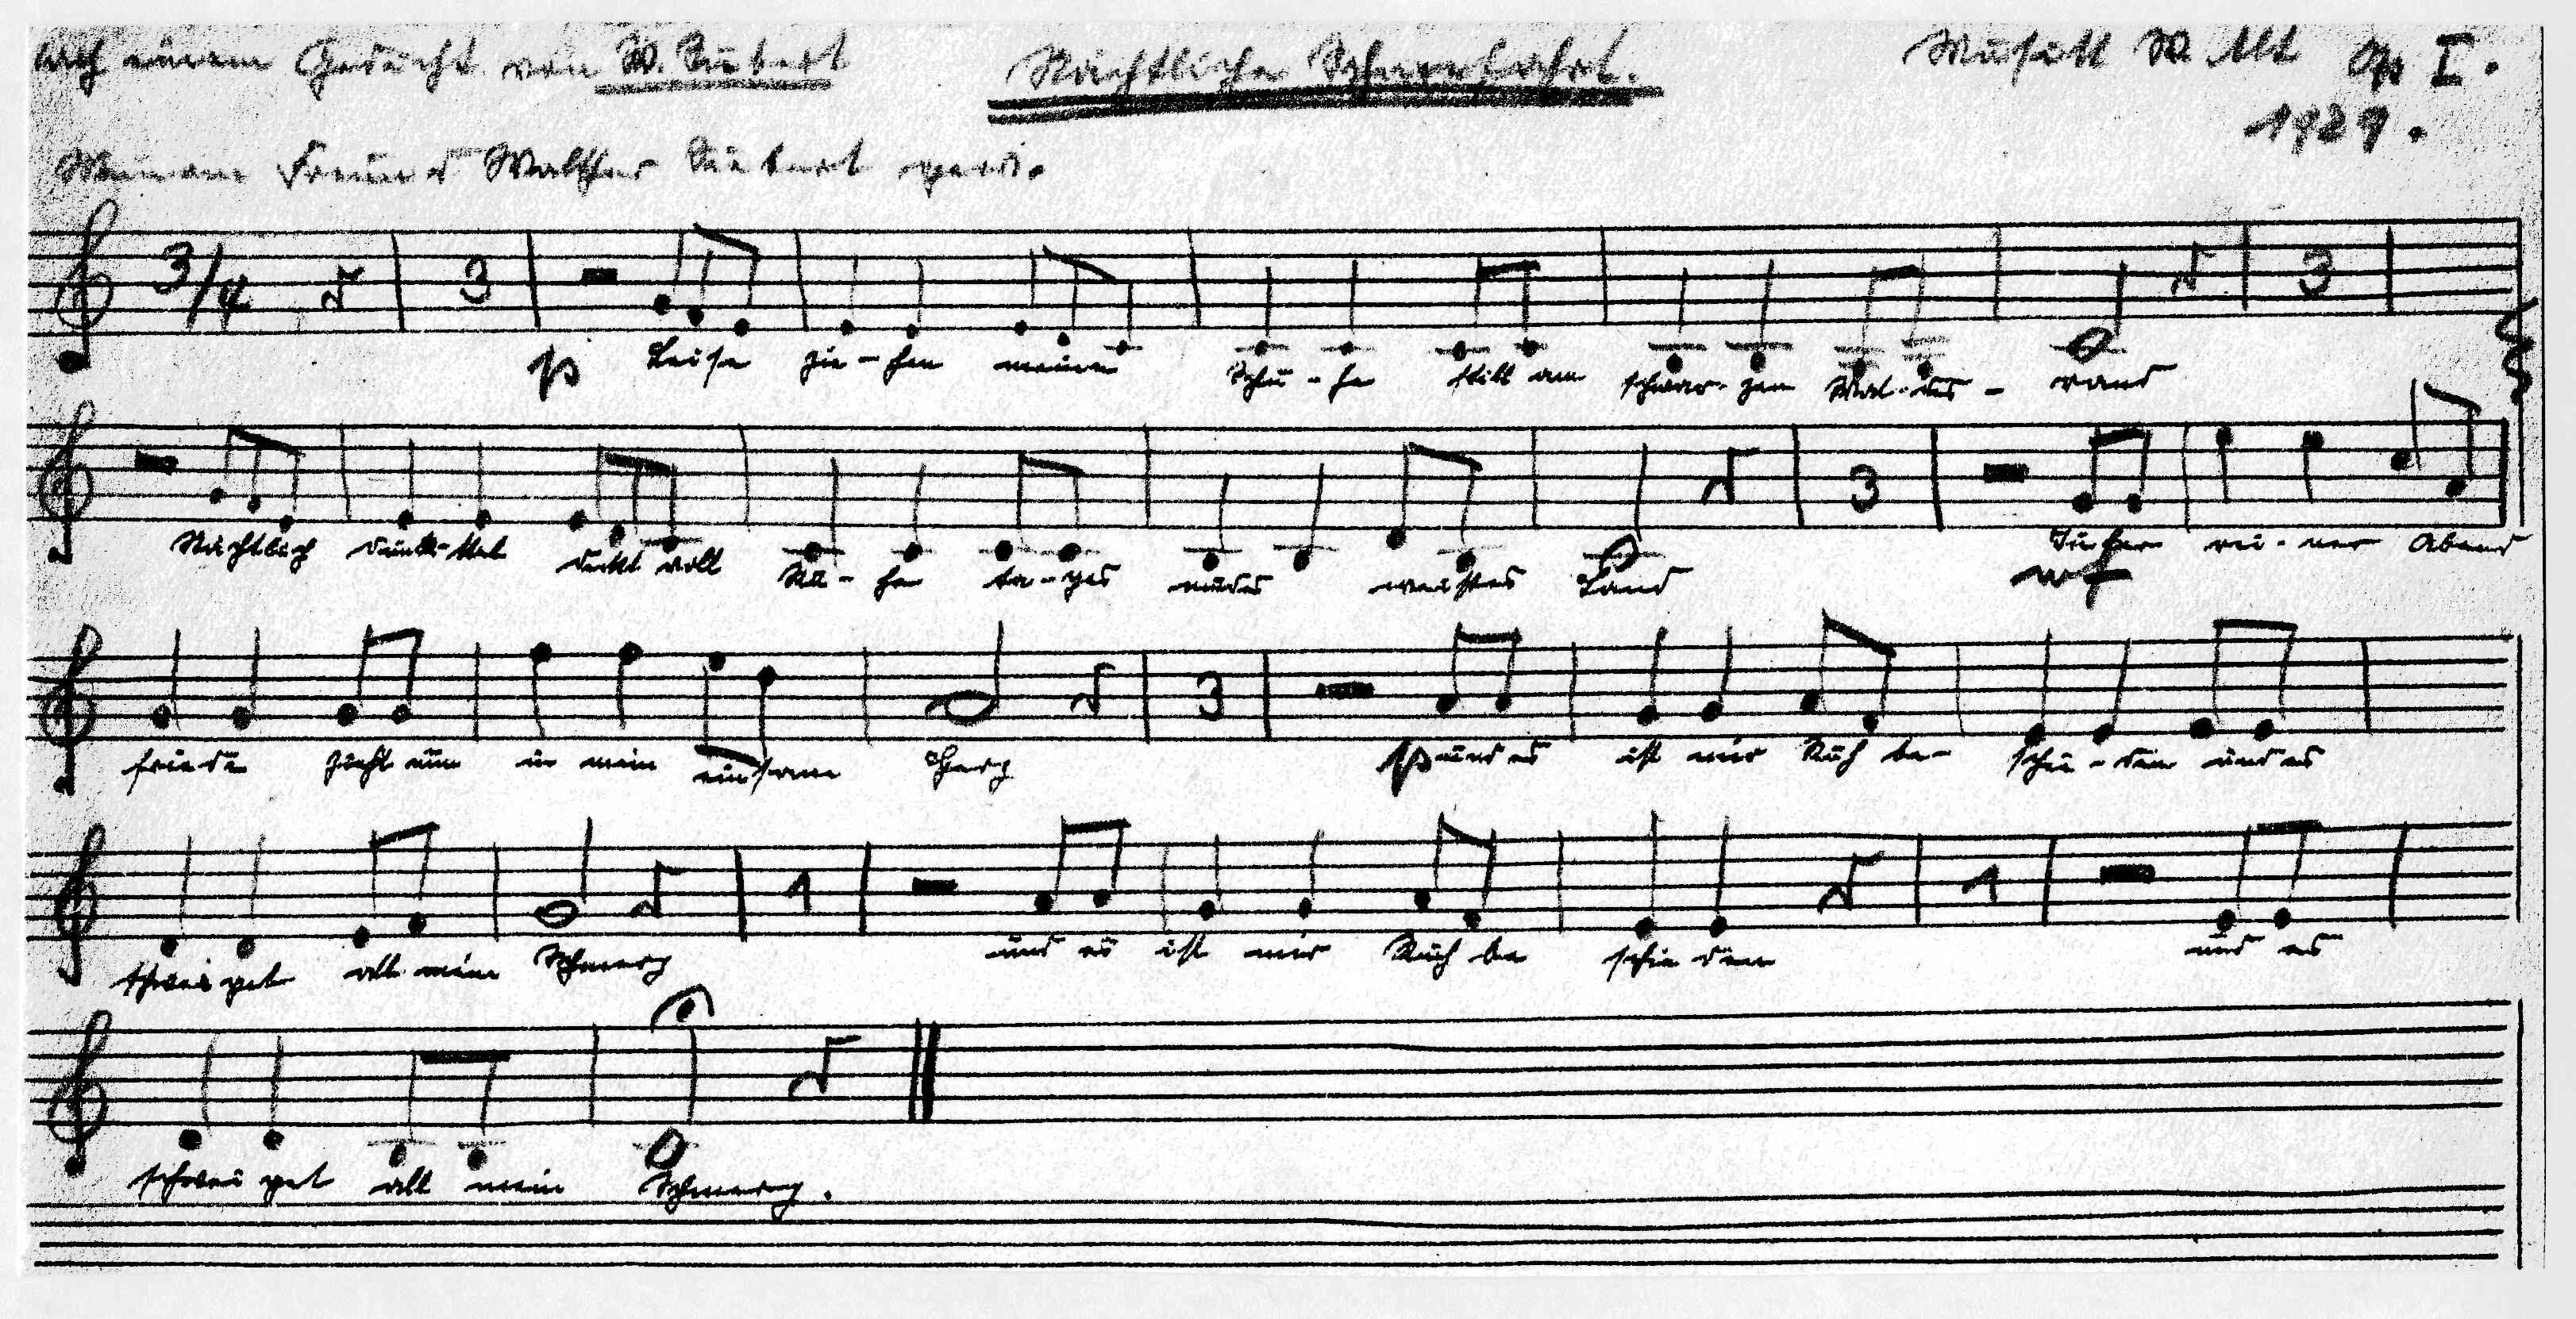 nach einem Gedicht von W. Siebert Nächtliche Schneefahrt. Musik W. Alt Op I.
1929.
Meinem Freund Walther Siebert
3/4 3 p Leise zie-hen meine Schu-he still am schwar-zen Wal-des-rand 3
Nächtlich dunk-kel deckt voll Ru-he ta-ges müdes weisses Land 3 mf Tiefer rei-ner Abend
friede zieht nun in mein einsam Herz 3 p und es ist mir Ruh be-schie-den und es
schwei get all mein Schmerz 1 und es ist mir Ruh be schie den 1 und es
schwei get all mein Schmerz.